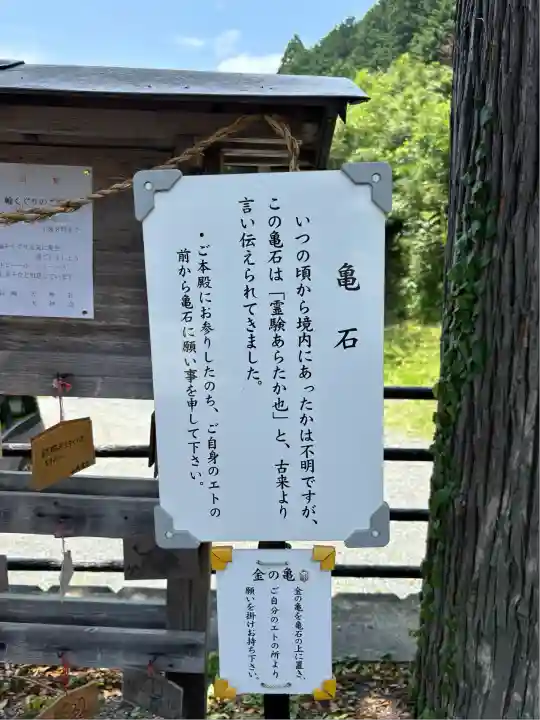 亀石
いつの頃から境内にあったかは不明ですが、
この亀石は「霊験あらたか也」と、古来より
言い伝えられてきました。
・ご本殿にお参りしたのち、ご自身のエトの
前から亀石に願い事を申して下さい。
金の亀
金の亀を亀石の上に置き、
ご自分のエトの所より
願いを掛けお持ち下さい。
輪くぐりのご